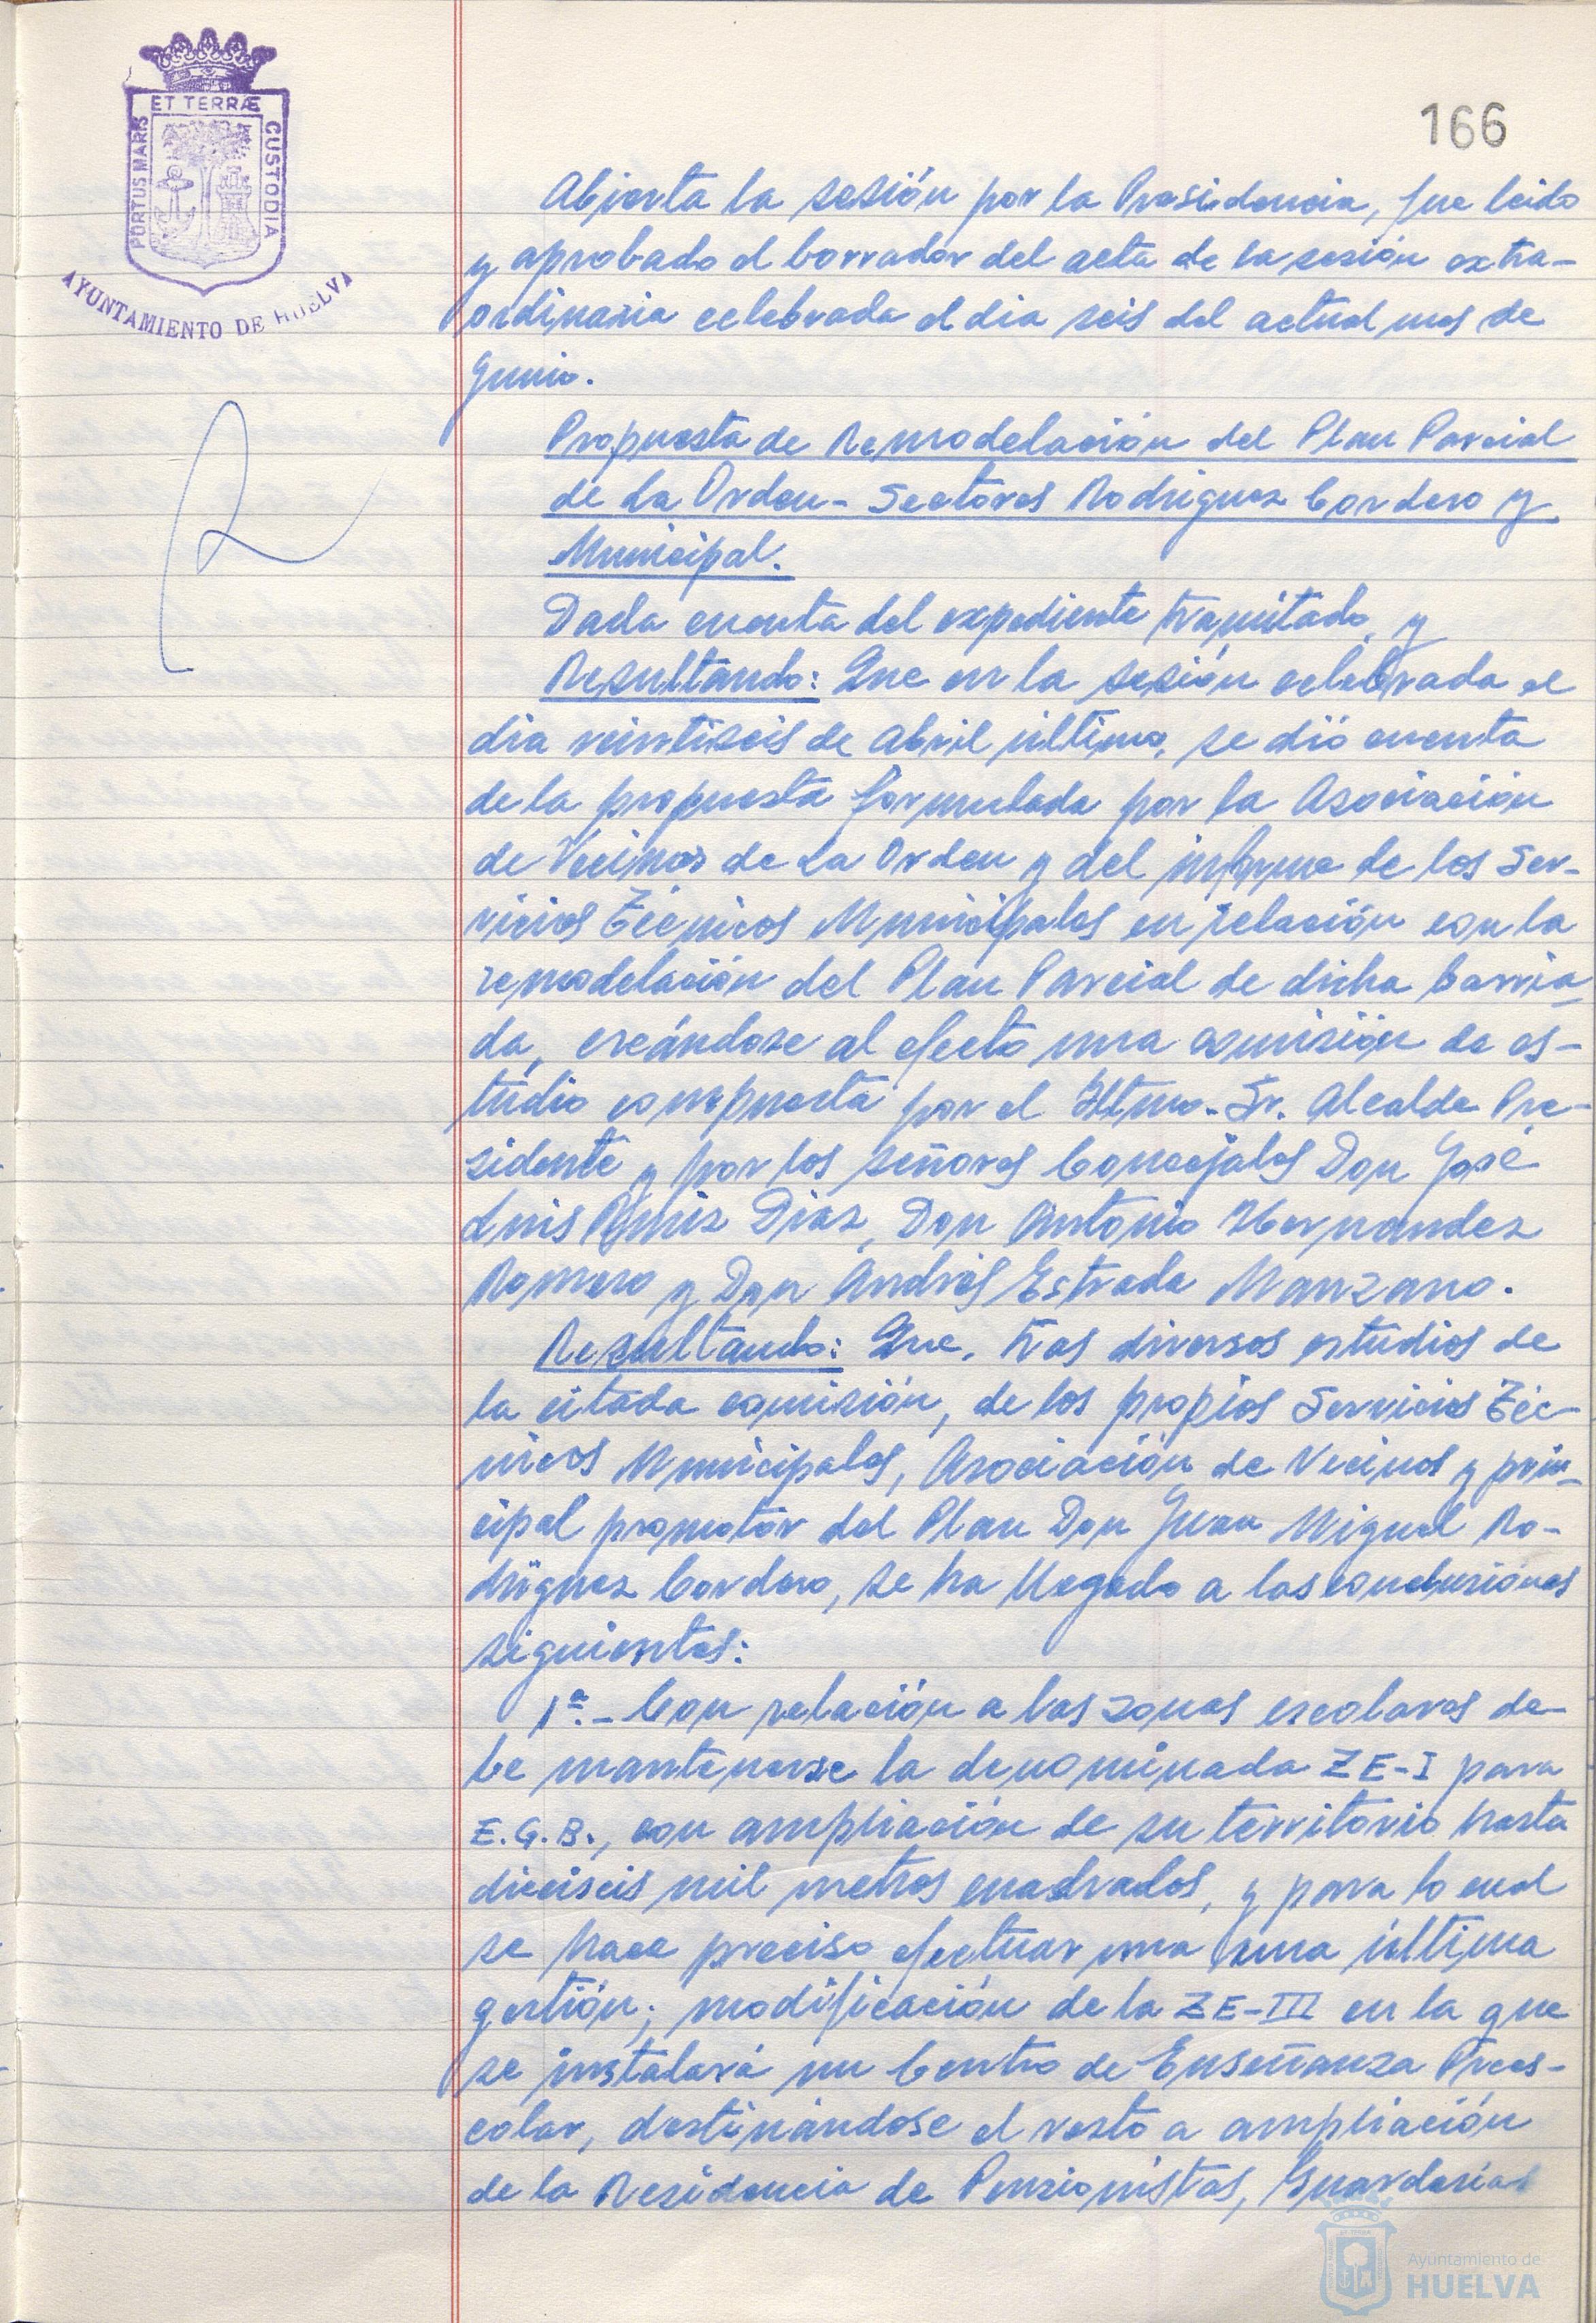 ET TERRÆ
PORTUS MARIS
CUSTODIA
AYUNTAMIENTO DE HUELVA
166
Abierta la sesión por la Presidencia, fue leido
y aprobado el borrador del acta de la sesión extra-
ordinaria celebrada el dia seis del actual mes de
Junio.
Propuesta de Remodelación del Plan Parcial
de La Orden- Sectores Rodriguez Cordero y
Municipal.
Dada cuenta del expediente tramitado, y
Resultando: Que en la sesión celebrada el
dia veintiseis de Abril último, se dió cuenta
de la propuesta formulada por la Asociación
de Vecinos de La Orden y del informe de los Ser-
vicios Técnicos Municipales en relación con la
remodelación del Plan Parcial de dicha barria-
da, creándose al efecto una comisión de es-
tudio compuesta por el Iltmo. Sr. Alcalde Pre-
sidente y por los señores Concejales Don José
Luis Ruiz Diaz, Don Antonio Hernandez
Romero y Don Andrés Estrada Manzano.
Resultando: Que, tras diversos estudios de
la citada comisión, de los propios Servicios Téc-
nicos Municipales, Asociación de Vecinos y prin-
cipal promotor del Plan Don Juan Miguel Ro-
driguez Cordero, se ha llegado a las conclusiones
siguientes:
1ª.- Con relación a las zonas escolares de-
be mantenerse la denominada ZE-I para
E.G.B., con ampliación de su territorio hasta
dieciseis mil metros cuadrados, y para lo cual
se hace preciso efectuar una una última
gestión; modificación de la ZE-III en la que
se instalará un Centro de Enseñanza Prees-
colar, destinándose el resto a ampliación
de la Residencia de Pensionistas, Guarderias
Ayuntamiento de
HUELVA